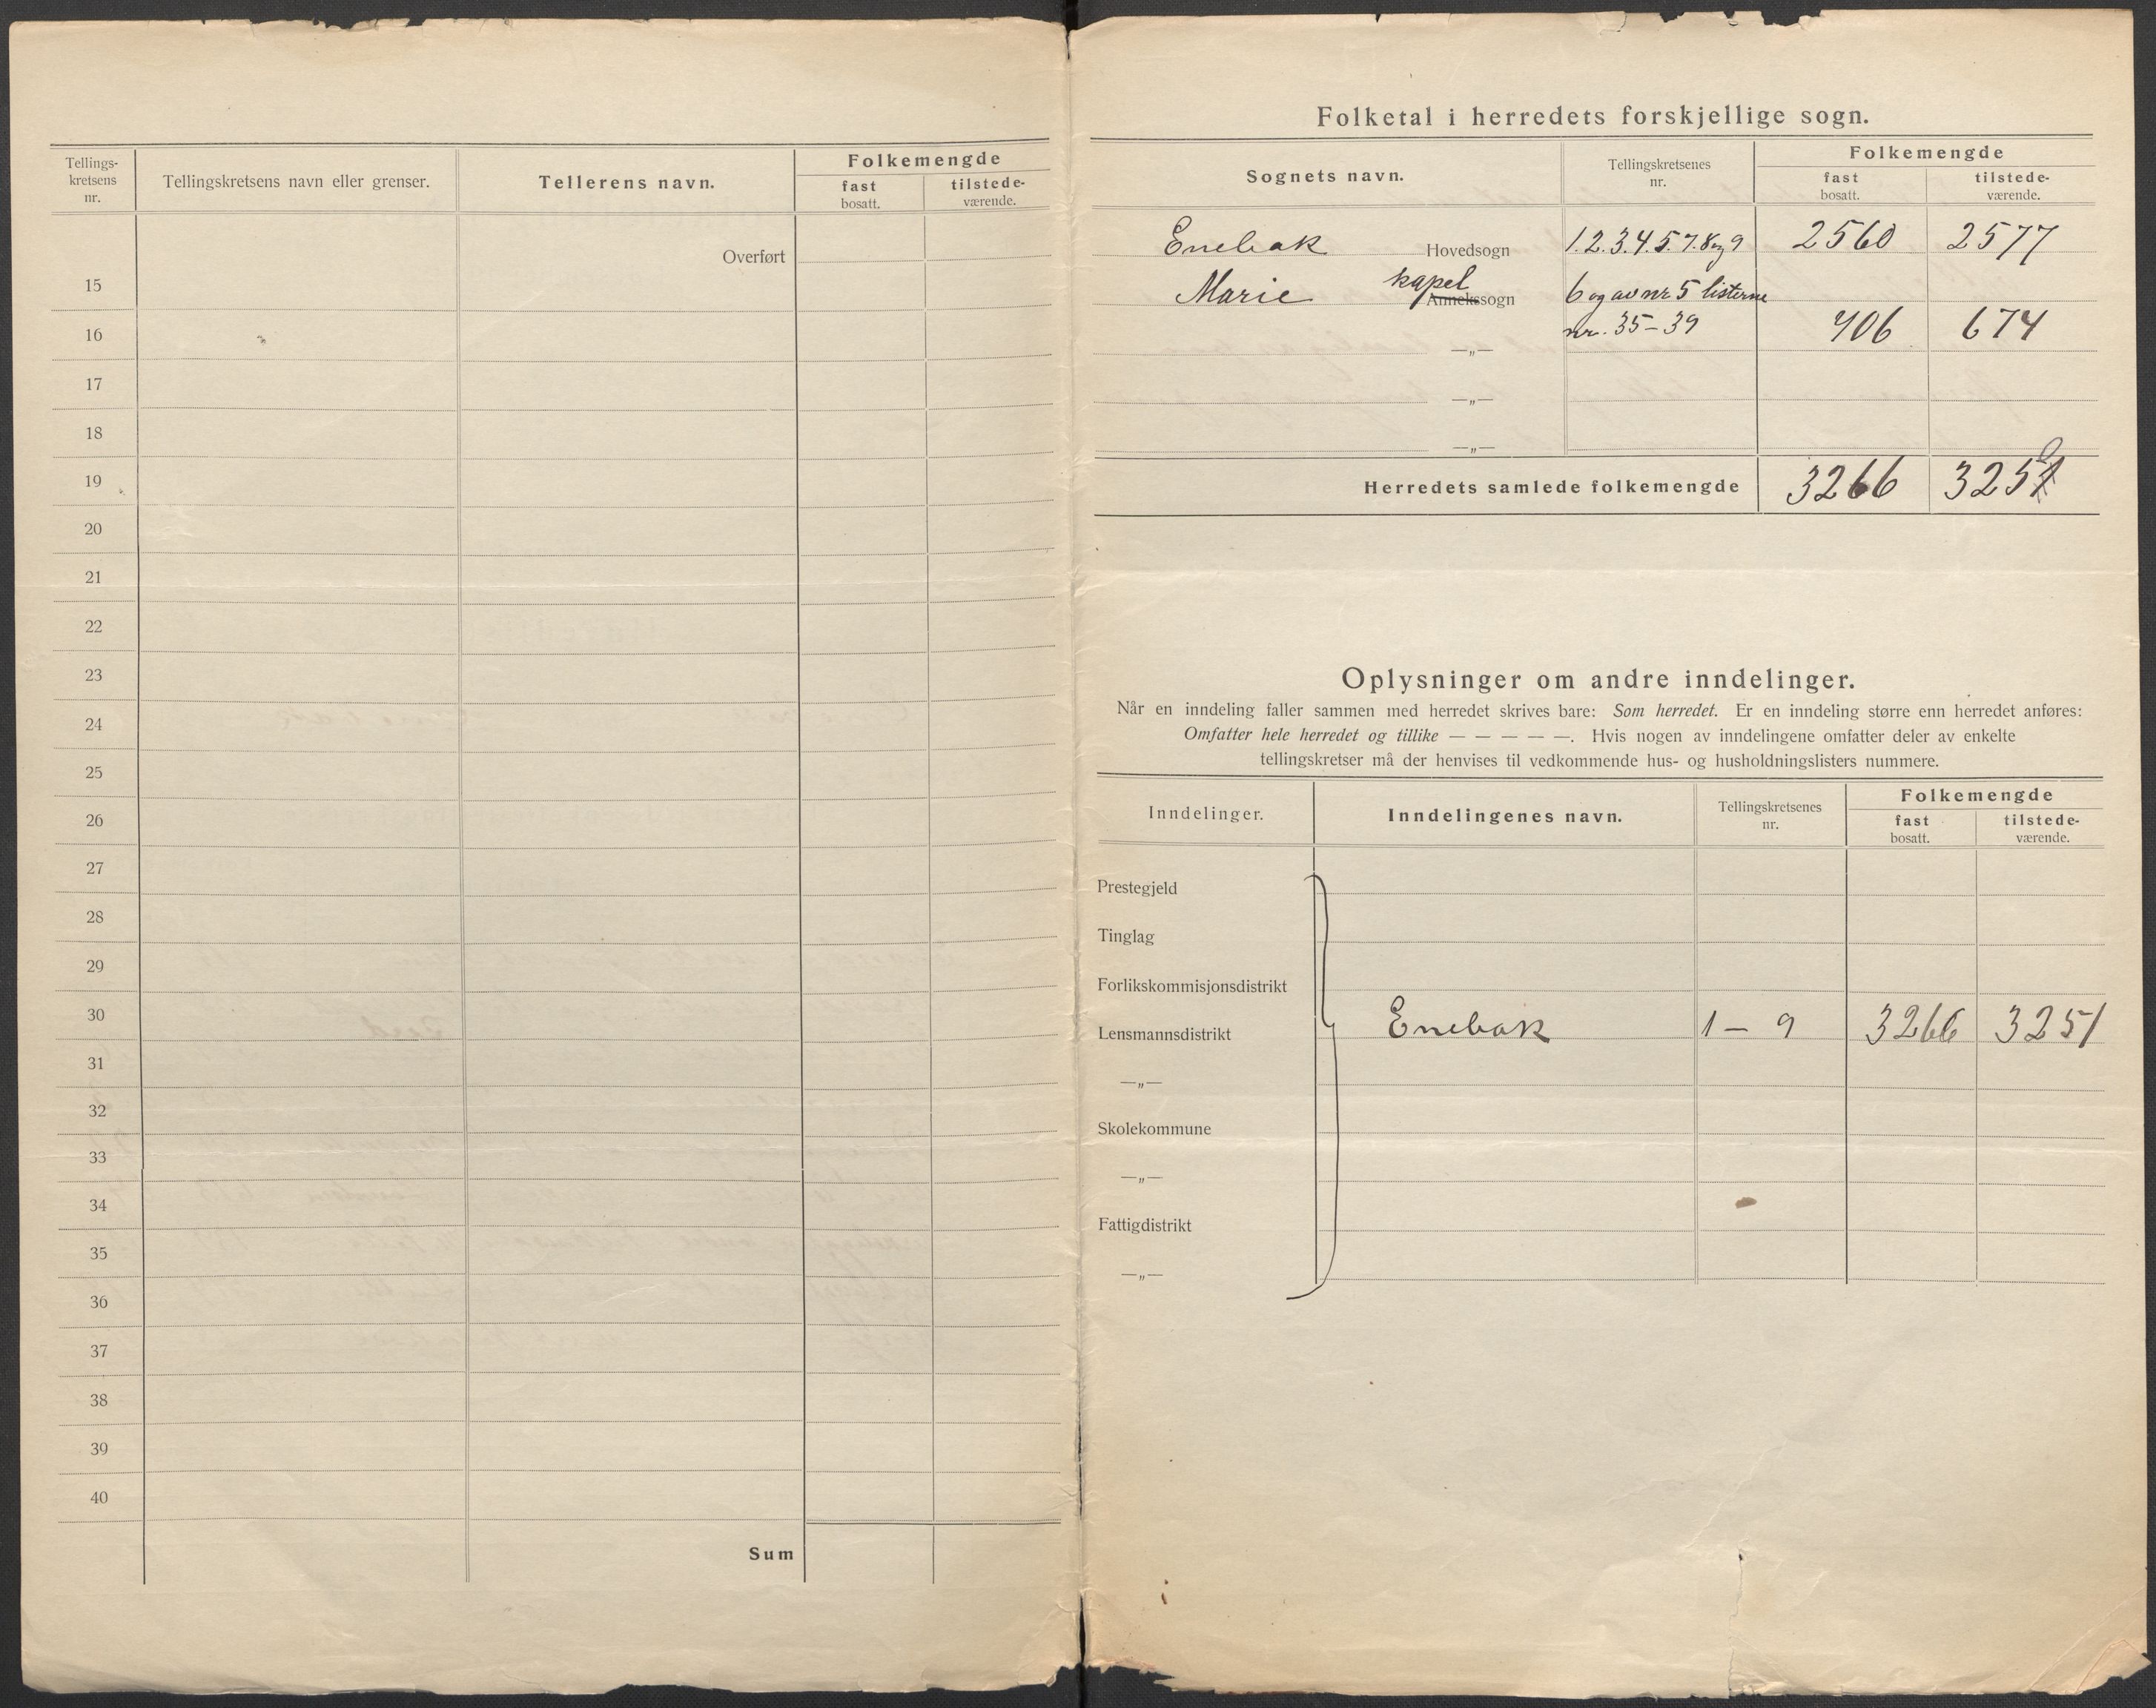 Tellings-
kretsens
nr.
Tellingskretsens navn eller grenser.
Tellerens navn.
Folkemengde
fast
bosatt.
tilstede-
værende.
Overført
15
16
17
18
19
20
21
22
23
24
25
26
27
28
29
30
31
32
33
34
35
36
37
38
39
40
Sum
Folketal i herredets forskjellige sogn.
Sognets navn.
Tellingskretsenes
nr.
Folkemengde
fast
bosatt.
tilstede-
værende.
Enebak Hovedsogn 1.2.3.4.5.7.8 og 9 2560 2577
Marie kapel Annekssogn 6 og av nr 5 listerne
nr. 35-39 706 674
—„—
—„—
—„—
Herredets samlede folkemengde 3266 325
Oplysninger om andre inndelinger.
Når en inndeling faller sammen med herredet skrives bare: Som herredet. Er en inndeling større enn herredet anføres:
Omfatter hele herredet og tillike — — — — —. Hvis nogen av inndelingene omfatter deler av enkelte
tellingskretser må der henvises til vedkommende hus- og husholdningslisters nummere.
Inndelinger.
Inndelingenes navn.
Tellingskretsenes
nr.
Folkemengde
fast
bosatt.
tilstede-
værende.
Prestegjeld
Tinglag
Forlikskommisjonsdistrikt
Lensmannsdistrikt Enebak 1 — 9 3266 3251
—„—
Skolekommune
—„—
Fattigdistrikt
—„—